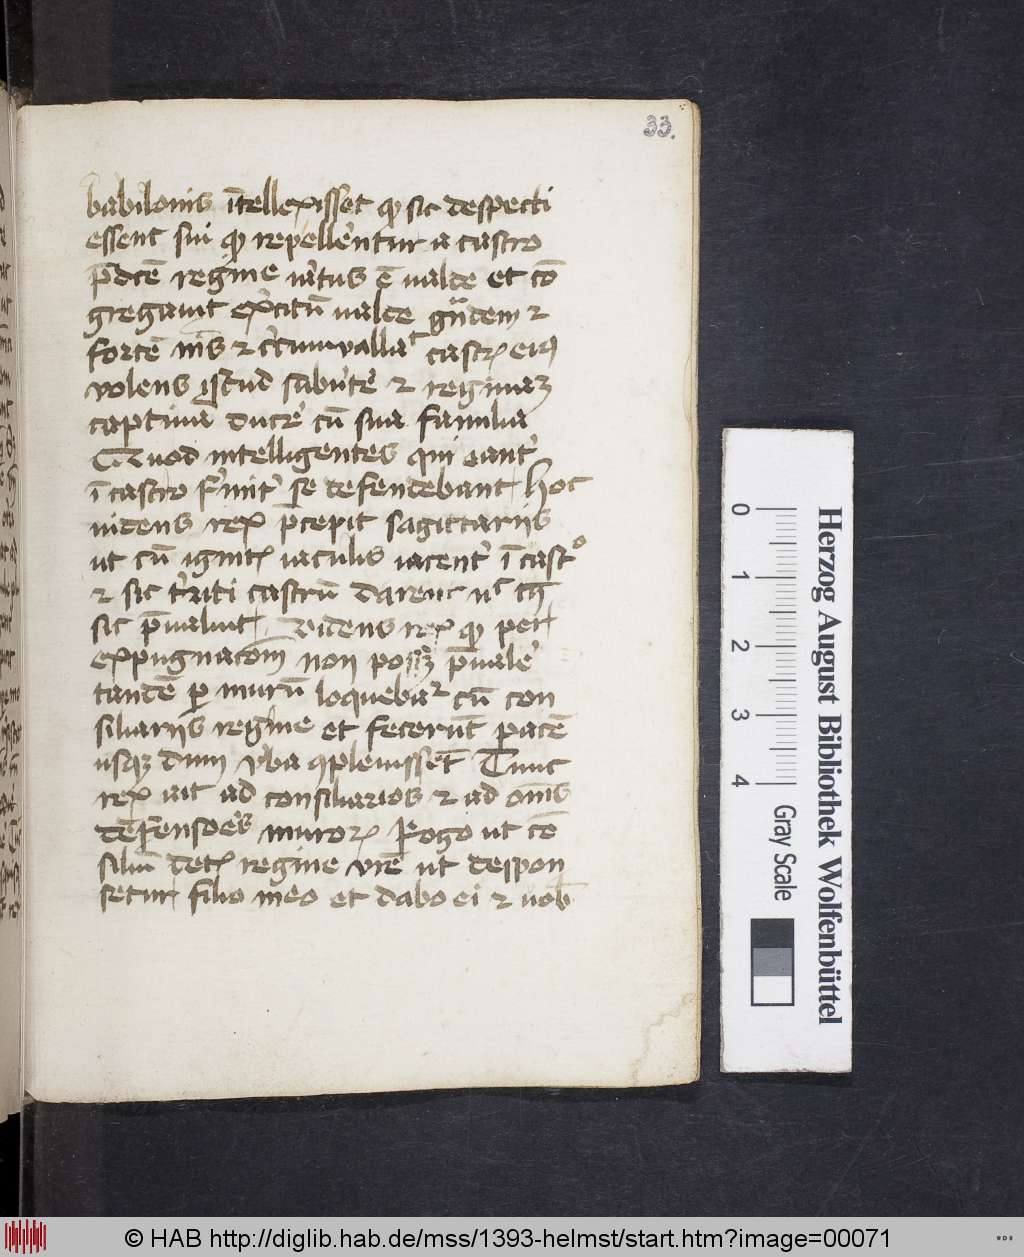 33.
babilonis ītellexisset ꝙ sic despecti
essent sui ꝙ repellerentur a castro
p̄dcē regine iratus ē valde et cō
gregauit exercitū valde grandem ⁊
fortē nīs ⁊ circumvallat castrꝝ eiꝰ
volens istud subuertere ⁊ reginaꝫ
captiua ducere cū sua familia
Quod intelligentes qui erant
ī castro firmiter se defendebant hoc
uidens rex p̄cepit sagittariis
ut cū ignitꝭ iaculis iacerent ī castro
⁊ sic territi castrū darent nec
sic p̄ualuit Videns rex ꝙ per
expugnacōem non posset p̄ualere
tandē ꝑ murū loquebatur cū con
siliariis regine et fecerūt pacē
usqꝫ dum verba ꝯpleuissēt Tunc
rex ait ad consiliarios ⁊ ad om̄s
defensores muroꝝ Rogo ut cō
siliū detꝭ regine vr̄e ut despon
setur filio meo et dabo ei ⁊ uob
0 1 2 3 4
Gray Scale
Herzog August Bibliothek Wolfenbüttel
© HAB http://diglib.hab.de/mss/1393-helmst/start.htm?image=00071